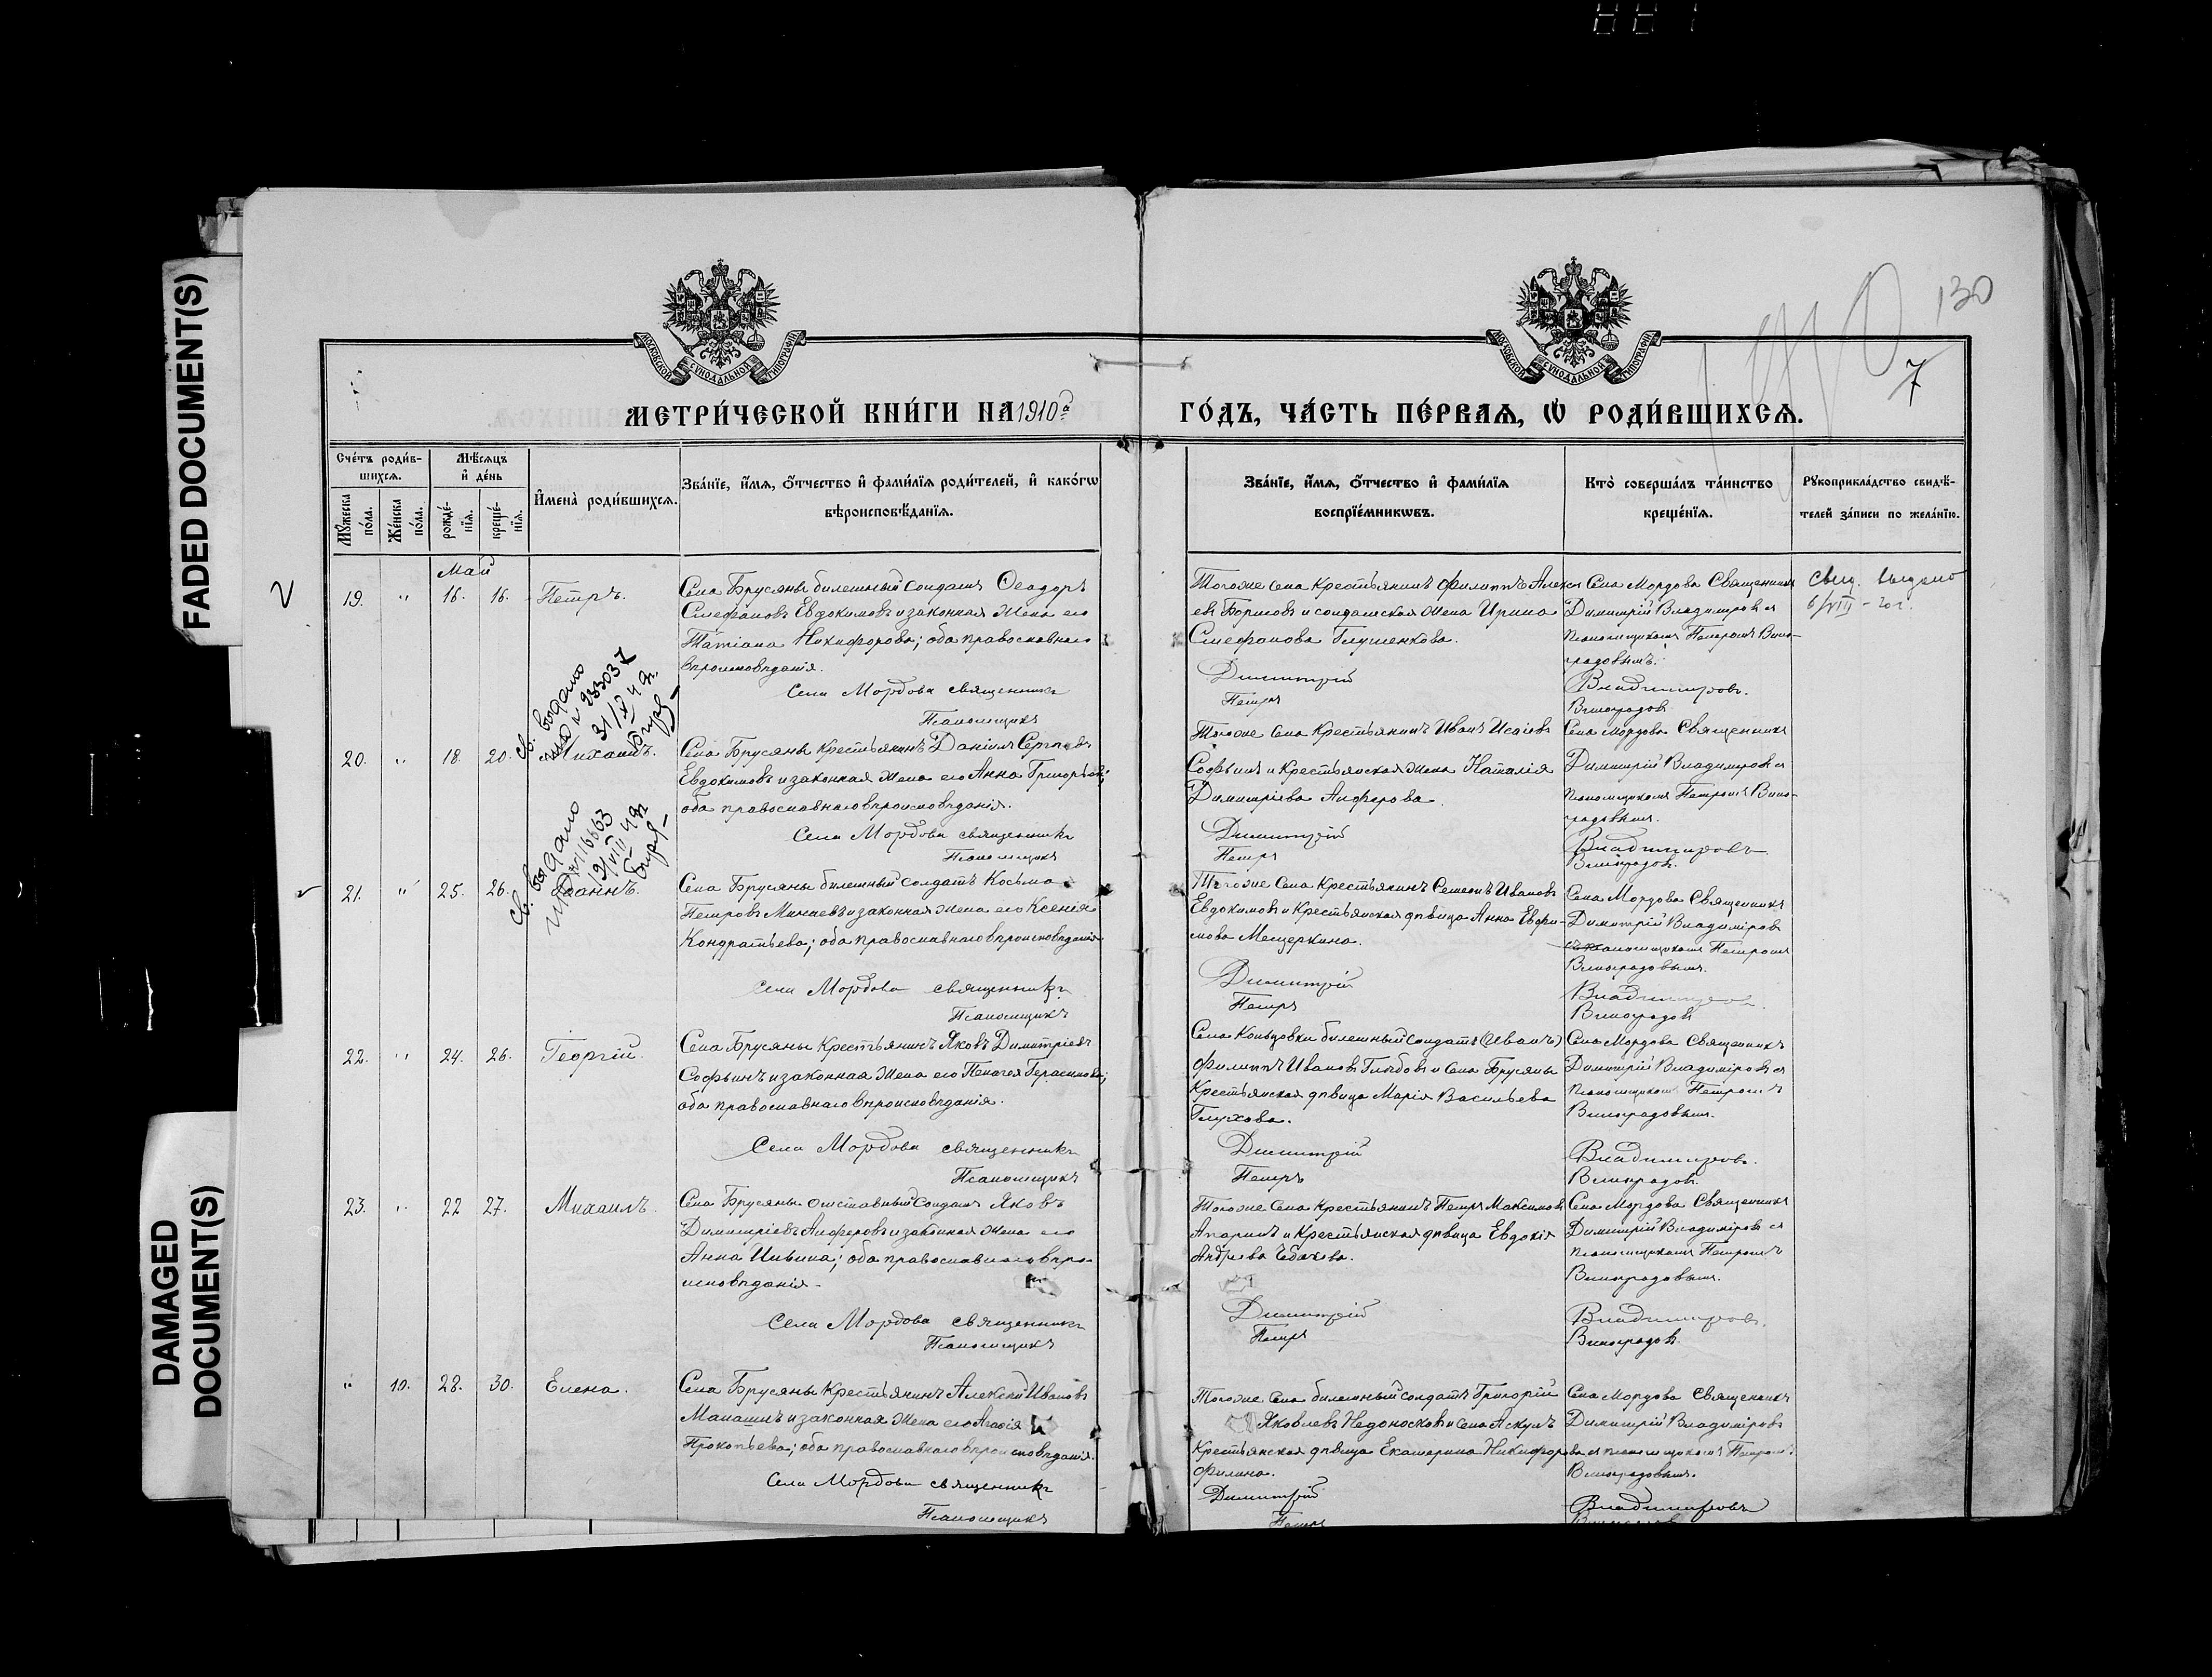 FADED DOCUMENT(S)
DAMAGED
DOCUMENT(S)
130
7
МОСКОВСКОЙ СѴНОДАЛЬНОЙ ТИПОГРАФІИ
МОСКОВСКОЙ СѴНОДАЛЬНОЙ ТИПОГРАФІИ
МЕТРИ́ЧЕСКОЙ КНИ́ГИ НА 1910й ГО́ДЪ, ЧА́СТЬ ПЕ́РВАѦ, Ѡ҆ РОДИ́ВШИХСѦ.
Сче́тъ роди́в-
шихсѧ.
Мѣ́сѧцъ
и҆ де́нь
Мꙋ́жеска по́ла.
Же́нска по́ла.
рожде́-
нїѧ.
креще́-
нїѧ.
И҆мена̀ роди́вшихсѧ.
Зва́нїе, и҆́мѧ, ѻ҆́тчество и҆ фами́лїѧ роди́телей, и҆ како́гѡ
вѣроисповѣ́данїѧ.
Зва́нїе, и҆́мѧ, ѻ҆́тчество и҆ фами́лїѧ
воспрїе́мникѡвъ.
Кто̀ соверша́лъ та́инство
креще́нїѧ.
Рꙋкоприкла́дство свидѣ́-
телей за́писи по жела́нїю.
Май
19. " 16. 16. Петръ.
Села Брусяны билетный солдатъ Ѳеодоръ
Стефановъ Евдокимовъ и законная жена его
Татіана Никифорова; оба православнаго
вѣроисповѣданія.
Села Мордова священникъ
Псаломщикъ
Тогоже села крестьянинъ Филиппъ Алексѣ-
евъ Борисовъ и солдатская жена Ирина
Стефанова Глушенкова.
Димитрій
Петръ
Села Мордова Священникъ
Димитрій Владиміровъ съ
псаломщикомъ Петромъ Вино-
градовымъ.
Владиміровъ.
Виноградовъ
Свид. выдано
6/VIII - 20 г.
св. выдано
31/X
20. " 18. 20. Михаилъ.
Села Брусяны крестьянинъ Даніилъ Сергѣевъ
Евдокимовъ и законная жена его Анна Григорьева;
оба православнаго вѣроисповѣданія.
Села Мордова священникъ
Псаломщикъ
Тогоже села крестьянинъ Иванъ Исаіевъ
Софьинъ и крестьянская жена Наталія
Димитріева Анферова.
Димитрій
Петръ
Села Мордова Священникъ
Димитрій Владиміровъ съ
псаломщикомъ Петромъ Вино-
градовымъ.
Владиміровъ
Виноградовъ.
св. выдано
21. " 25. 26. Іоаннъ.
Села Брусяны билетный солдатъ Косьма
Петровъ Минаевъ и законная жена его Ксенія
Кондратьева; оба православнаго вѣроисповѣданія
Села Мордова священникъ
Псаломщикъ
Тогоже села крестьянинъ Семенъ Ивановъ
Евдокимовъ и крестьянская дѣвица Анна Евфи-
мова Мещеркина.
Димитрій
Петръ
Села Мордова Священникъ
Димитрій Владиміровъ
псаломщикомъ Петромъ
Виноградовымъ.
Владиміровъ.
Виноградовъ
22. " 24. 26. Георгій.
Села Брусяны крестьянинъ Яковъ Димитріевъ
Софьинъ и законная жена его Пелагея Герасимова;
оба православнаго вѣроисповѣданія.
Села Мордова священникъ
Псаломщикъ
Села Кольцовки билетный солдатъ (Иванъ)
Филиппъ Ивановъ Глѣбовъ и села Брусяны
крестьянская дѣвица Марія Васильева
Глухова.
Димитрій
Петръ
Села Мордова Священникъ
Димитрій Владиміровъ съ
псаломщикомъ Петромъ
Виноградовымъ.
Владиміровъ.
Виноградовъ.
23. " 22 27. Михаилъ.
Села Брусяны отставный солдатъ Яковъ
Димитріевъ Анферовъ и законная жена его
Анна Ильина; оба православнаго вѣро-
исповѣданія.
Села Мордова священникъ
Псаломщикъ
Тогоже села крестьянинъ Петръ Максимовъ
Апаринъ и крестьянская дѣвица Евдокія
Андреева
Димитрій
Петръ
Села Мордова Священникъ
Димитрій Владиміровъ съ
псаломщикомъ Петромъ
Виноградовымъ.
Владиміровъ.
Виноградовъ.
" 10. 28. 30. Елена.
Села Брусяны крестьянинъ Алексѣй Ивановъ
Манашинъ и законная жена его Агафія
Прокопьева; оба православнаго вѣроисповѣданія.
Села Мордова священникъ
Псаломщикъ
Тогоже села билетный солдатъ Григорій
Яковлевъ Недоносковъ и села Аскулъ
крестьянская дѣвица Екатерина Никифорова
Филина.
Димитрій
Петръ
Села Мордова Священникъ
Димитрій Владиміровъ
съ псаломщикомъ Петромъ
Виноградовымъ.
Владиміровъ